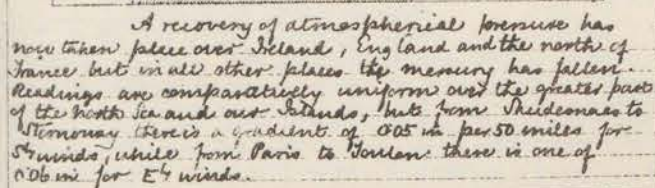 A recovery of atmospherical pressure has
now taken place over Ireland, England and the north of
France but in all other places the mercury has fallen.
Readings are comparatively uniform over the greater part
of the North Sea and our Islands, but from Skudesnaes to
Stornoway there is a gradient of 0.05 in per 50 miles for
Sly winds, while from Paris to Toulon there is one of
0.06 in for Ely winds.